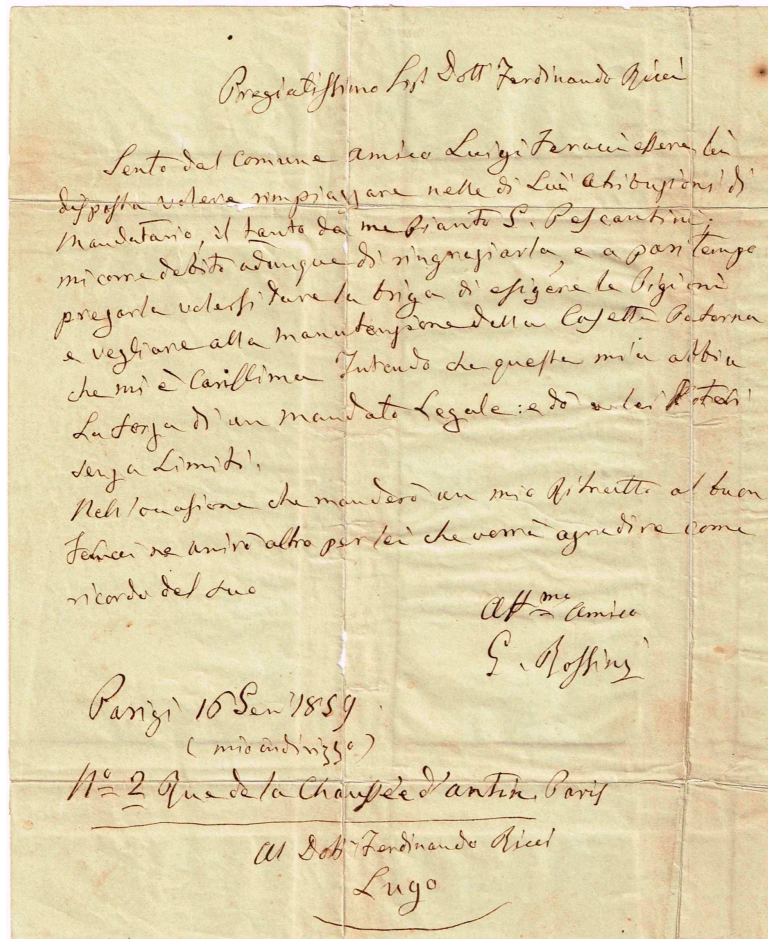 Pregiatissimo Sigr Dott Ferdinando Ricci
Sento dal Comune Amico Luigi Ferucci essere Lei
disposta volere rimpiazzare nelle di Lui atribuzioni di
Mandatario, il tanto da me pianto S. Pescantini;
mi corre debito adunque di ringraziarla, e a pari tempo
pregarla volersi dare la briga di esigere le Pigioni
e vegliare alla manutenzione della Casetta Paterna
che mi è Carissima Intendo che questa mia abbia
La forza di un mandato Legale: e dò a lei Poteri
senza Limiti.
Nell'ocasione che manderò un mio Ritratto al buon
Ferucci ne unirò altro per lei che vorrà agradire come
ricordo del suo
Aff.mo Amico
G. Rossini
Parigi 16 Gen 1859
(mio indirizzo)
No 2 Rue de la Chaussée d'antin. Paris
Al Dott Ferdinando Ricci
Lugo